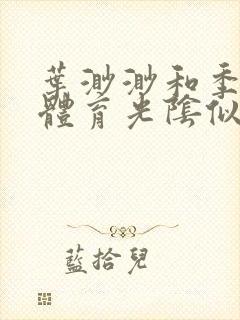 葉渺渺和季
體育光陰似
藍拾兒